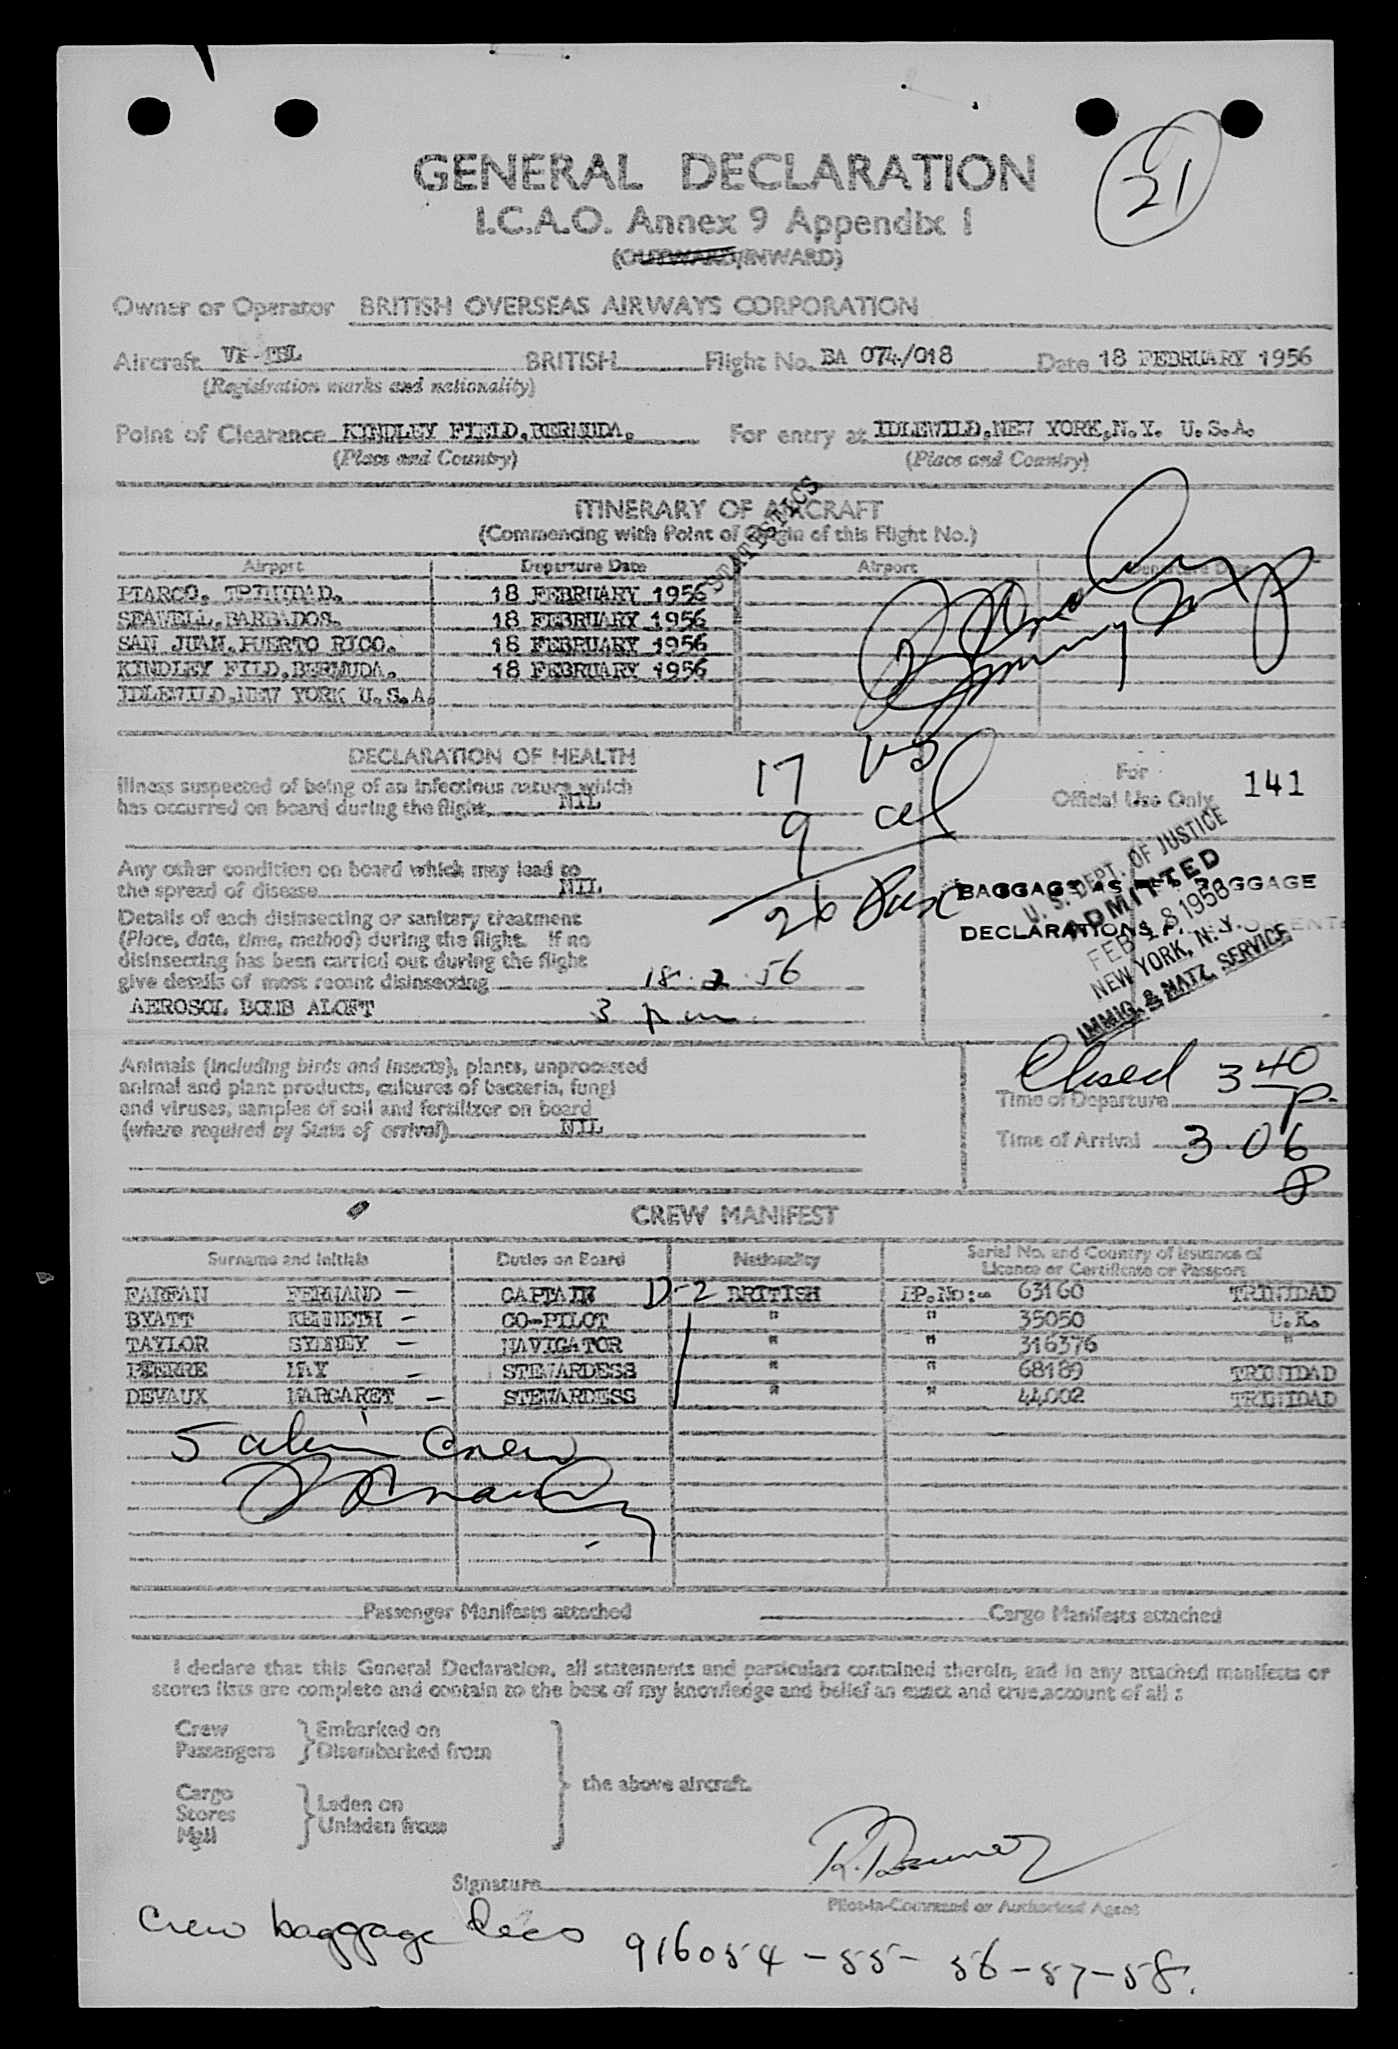 21
GENERAL DECLARATION
I.C.A.O. Annex 9 Appendix I
(OUTWARD/INWARD)
Owner or Operator BRITISH OVERSEAS AIRWAYS CORPORATION
Aircraft BRITISH Flight No. BA 074/018 Date 18 FEBRUARY 1956
(Registration marks and nationality)
Point of Clearance KINDLEY FIELD, BERMUDA. For entry at IDLEWILD, NEW YORK, N.Y. U.S.A.
(Place and Country) (Place and Country)
STATISTICS
ITINERARY OF AIRCRAFT
(Commencing with Point of Origin of this Flight No.)
Airport Departure Date Airport Departure Date
PIARCO, TRINIDAD. 18 FEBRUARY 1956
SEAWELL, BARBADOS. 18 FEBRUARY 1956
SAN JUAN, PUERTO RICO. 18 FEBRUARY 1956
KINDLEY FILD, BERMUDA. 18 FEBRUARY 1956
IDLEWILD, NEW YORK U.S.A.
DECLARATION OF HEALTH
Illness suspected of being of an infectious nature which
has occurred on board during the flight. NIL
17 us
9 al
26 Pass
For
Official Use Only 141
Any other condition on board which may lead to
the spread of disease NIL
Details of each disinsecting or sanitary treatment
(Place, date, time, method) during the flight. If no
disinsecting has been carried out during the flight
give details of most recent disinsecting 18.2.56
AEROSOL BOMB ALOFT 3 pm
BAGGAGE AS PER BAGGAGE
DECLARATIONS
U. S. DEPT. OF JUSTICE
ADMITTED
FEB 18 1956
NEW YORK, N. Y.
IMMIG. & NATZ. SERVICE
Animals (including birds and insects), plants, unprocessed
animal and plant products, cultures of bacteria, fungi
and viruses, samples of soil and fertilizer on board
(where required by State of arrival) NIL
Closed 3 40 p.
Time of Departure
Time of Arrival 3.06 P
CREW MANIFEST
Surname and Initials Duties on Board Nationality Serial No. and Country of Issuance of
Licence or Certificate or Passport
FARFAN FERNAND - CAPTAIN D-2 BRITISH PP.No:- 63160 TRINIDAD
BYATT KENNETH - CO-PILOT " " 35050 U.K.
TAYLOR SYDNEY - NAVIGATOR " " 316376 "
PIERRE MAY - STEWARDESS " " 68189 TRINIDAD
DEVAUX MARGARET - STEWARDESS " " 44002 TRINIDAD
5 alien crew
Passenger Manifests attached Cargo Manifests attached
I declare that this General Declaration, all statements and particulars contained therein, and in any attached manifests or
stores lists are complete and contain to the best of my knowledge and belief an exact and true account of all :
Crew } Embarked on
Passengers } Disembarked from
the above aircraft.
Cargo
Stores } Laden on
Mail } Unladen from
Signature
Pilot-in-Command or Authorised Agent
Crew baggage Decs 916054-55-56-57-58.